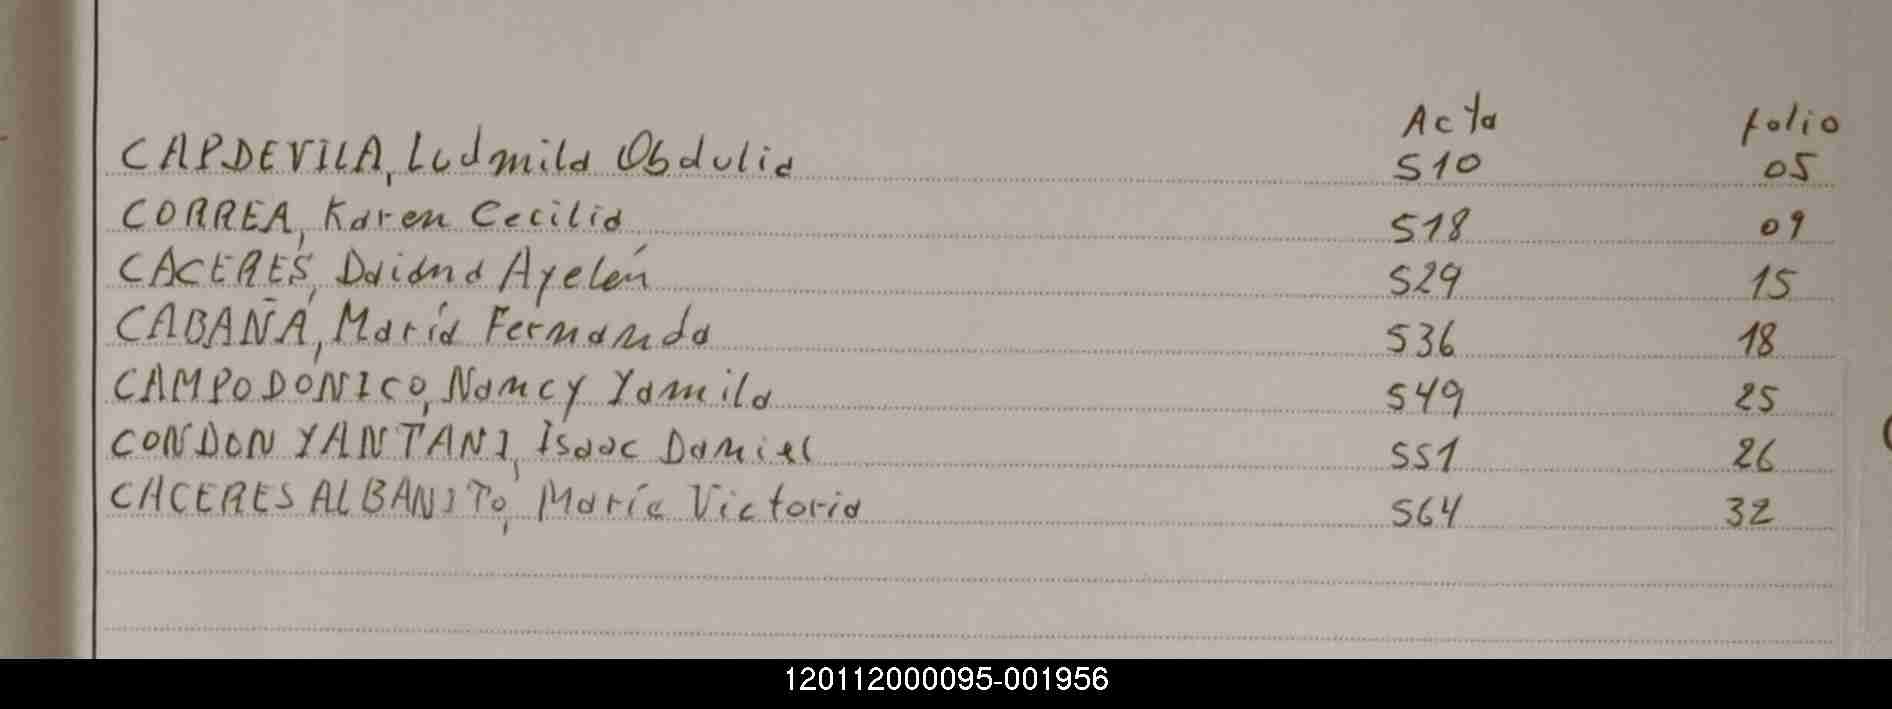 Acta folio
CAPDEVILA, Ludmila Obdulia 510 05
CORREA, Karen Cecilia 518 09
CACERES, Daiana Ayelén 529 15
CABAÑA, María Fernanda 536 18
CAMPODÓNICO, Nancy Yamila 549 25
CONDON YANTANI, Isaac Daniel 551 26
CACERES ALBANITO, María Victoria 564 32
120112000095-001956